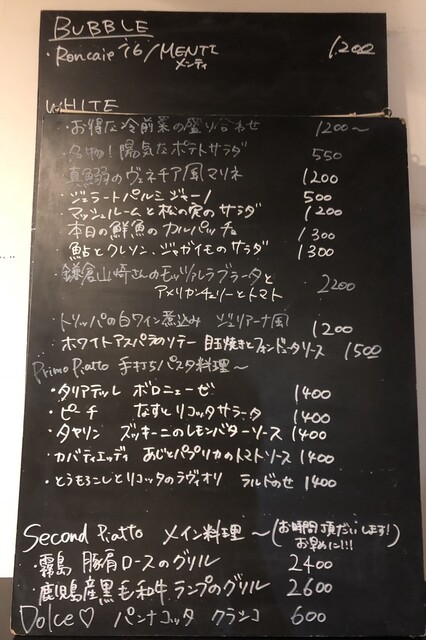 BUBBLE
・Roncaie '16/MENTI 1,200
メンティ
WHITE
・お得な冷前菜の盛り合わせ 1200〜
・名物!陽気なポテトサラダ 550
・真鰯のヴェネチア風マリネ 1200
・ジェラートパルミジャーノ 500
・マッシュルームと松の実のサラダ 1200
・本日の鮮魚のカルパッチョ 1300
・鮎とクレソン、ジャガイモのサラダ 1300
・鎌倉山崎さんのモッツァレラブラータと
アメリカンチェリーとトマト 2200
・トリッパの白ワイン煮込み ジュリアーナ風 1200
・ホワイトアスパラのソテー 目玉焼きとフォンデュータソース 1500
Primo Piatto 手打ちパスタ料理〜
・タリアテッレ ボロニェーゼ 1400
・ピーチ なすとリコッタサラータ 1400
・タヤリン ズッキーニのレモンバターソース 1400
・カバティエッディ あじとパプリカのトマトソース 1400
・とうもろこしとリコッタのラヴィオリ ラルドのせ 1400
Second Piatto メイン料理 〜(お時間頂だいします!
お早めに!!!)
・霧島 豚肩ロースのグリル 2400
・鹿児島産黒毛和牛 ランプのグリル 2600
Dolce♡ パンナコッタ クラシコ 600